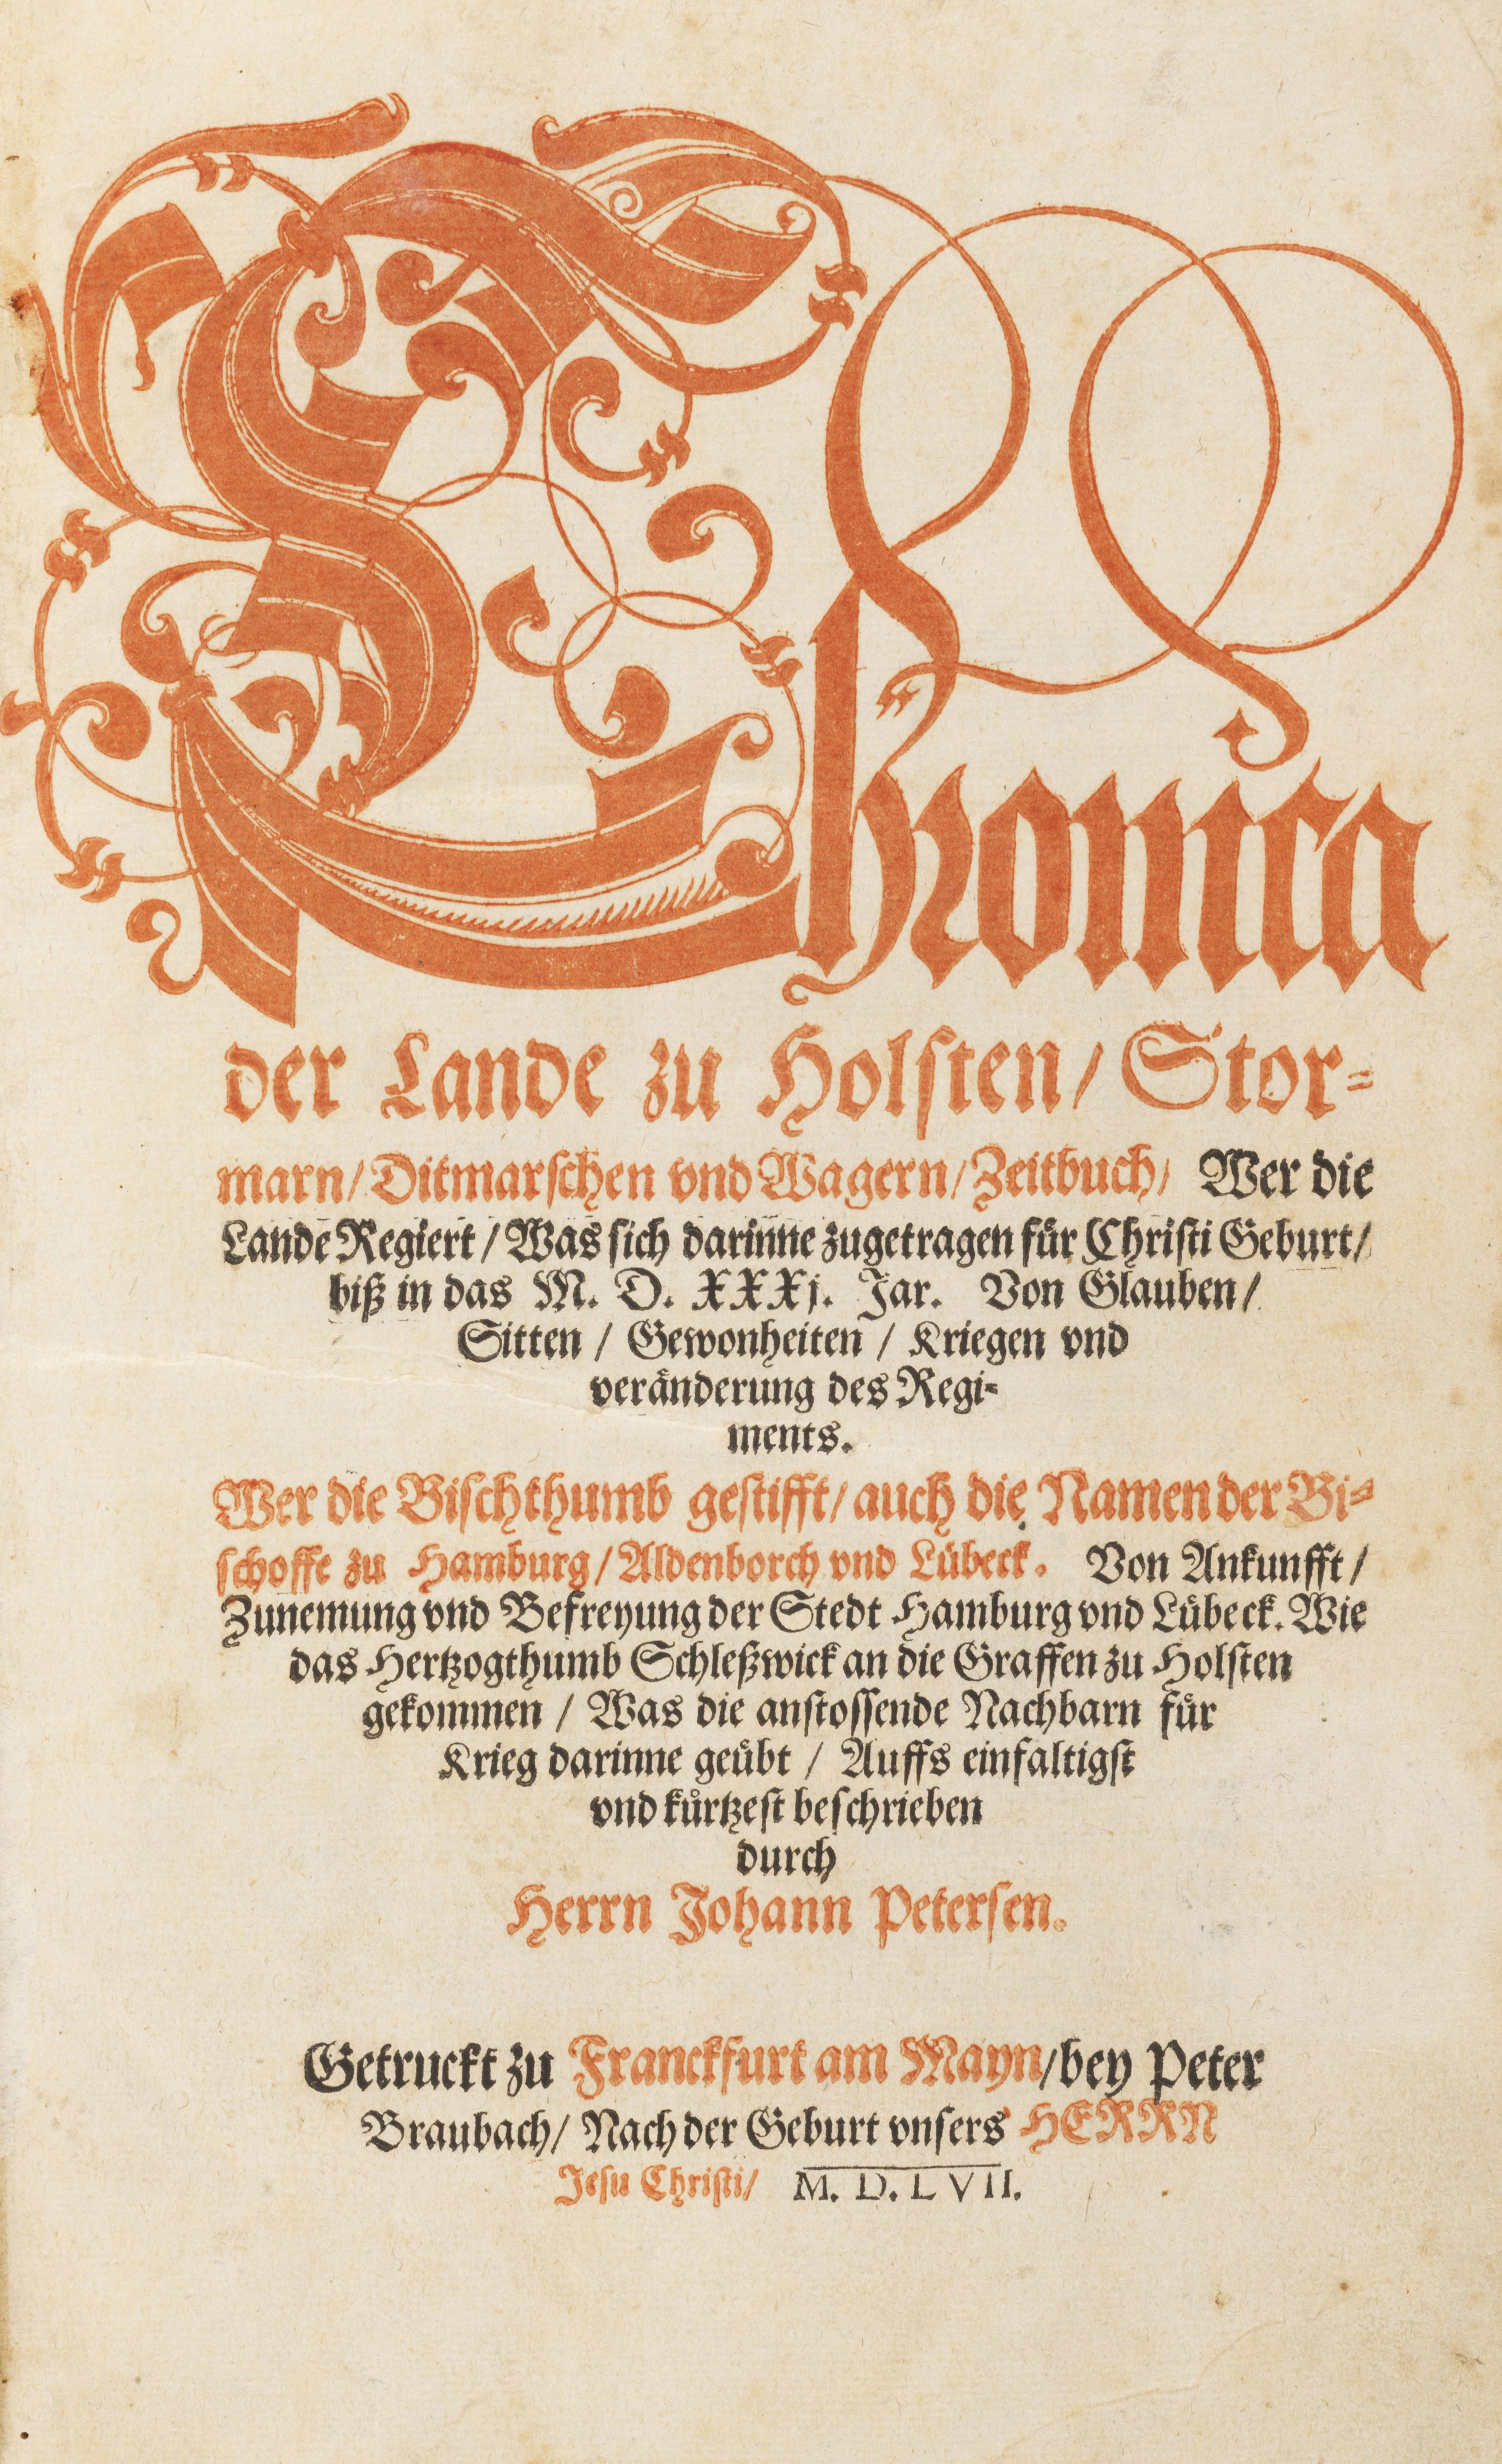 Chronica
der Lande zu Holsten/ Stor⸗
marn/ Ditmarschen vnd Wagern/ Zeitbuch/ Wer die
Lande Regiert / Was sich darinne zugetragen fuͤr Christi Geburt/
biß in das M. D. XXXj. Jar. Von Glauben/
Sitten / Gewonheiten / Kriegen vnd
veraͤnderung des Regi⸗
ments.
Wer die Bischthumb gestifft/ auch die Namen der Bi⸗
schoffe zu Hamburg/ Aldenborch vnd Luͤbeck. Von Ankunfft /
Zunemung vnd Befreyung der Stedt Hamburg vnd Luͤbeck. Wie
das Hertzogthumb Schleßwick an die Graffen zu Holsten
gekommen / Was die anstossende Nachbarn fuͤr
Krieg darinne geuͤbt / Auffs einfaltigst
vnd kuͤrtzest beschrieben
durch
Herrn Johann Petersen.
Getruckt zu Franckfurt am Mayn/ bey Peter
Braubach/ Nach der Geburt vnsers HERRN
Jesu Christi/ M. D. L VII.